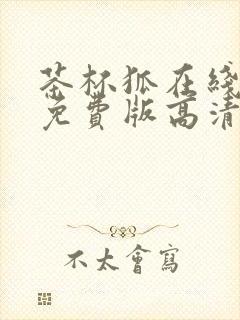 茶杯狐在綫
免費版高清
不太會寫